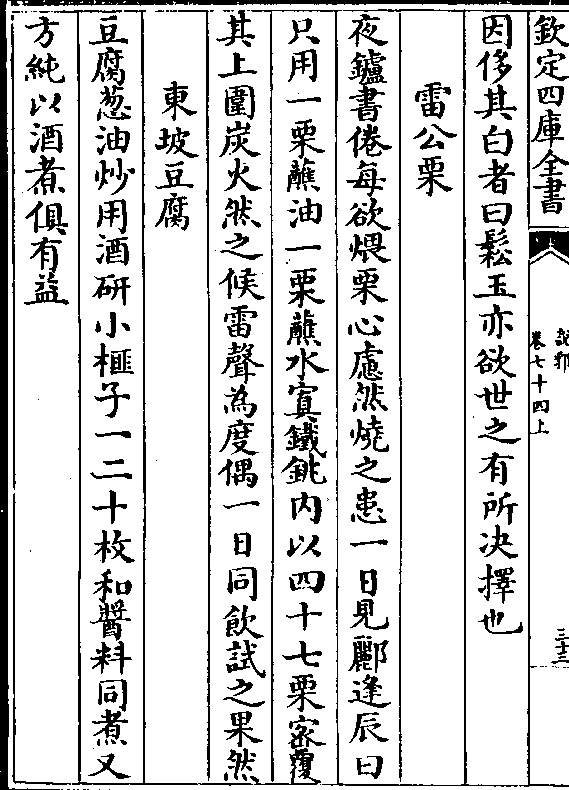 欽定四庫全書
說郛
卷七十四上
三十三
因侈其白者曰鬆玉亦欲世之有所決擇也
雷公栗
夜鑪書倦每欲煨栗心慮然燒之患一日見酈逢辰曰
只用一栗蘸油一栗蘸水寘鐵銚内以四十七栗宻覆
其上圍炭火然之候雷聲為度偶一日同飲試之果然
東坡豆腐
豆腐葱油炒用酒研小榧子一二十枚和醬料同煮又
方純以酒煮俱有益